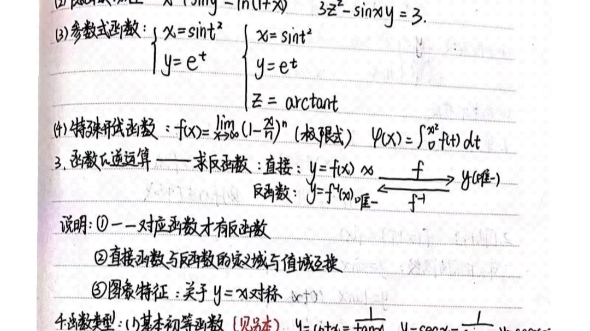 3z²-sinxy=3.
(3)参数式函数: { x=sint² y=e^t { x=sint² y=e^t z=arctant
(4)特殊形式函数: f(x)=lim x→∞ (1-x/n)^n (极限式) φ(x)=∫₀^{x²} f(t)dt
3.函数的逆运算——求反函数:直接: y=f(x) x f y(唯一)
反函数: y=f⁻¹(x) 唯一 f⁻¹
说明:①一一对应函数才有反函数
②直接函数与反函数的定义域与值域互换
③图象特征:关于y=x对称
4.函数类型:(1)基本初等函数(见书本)